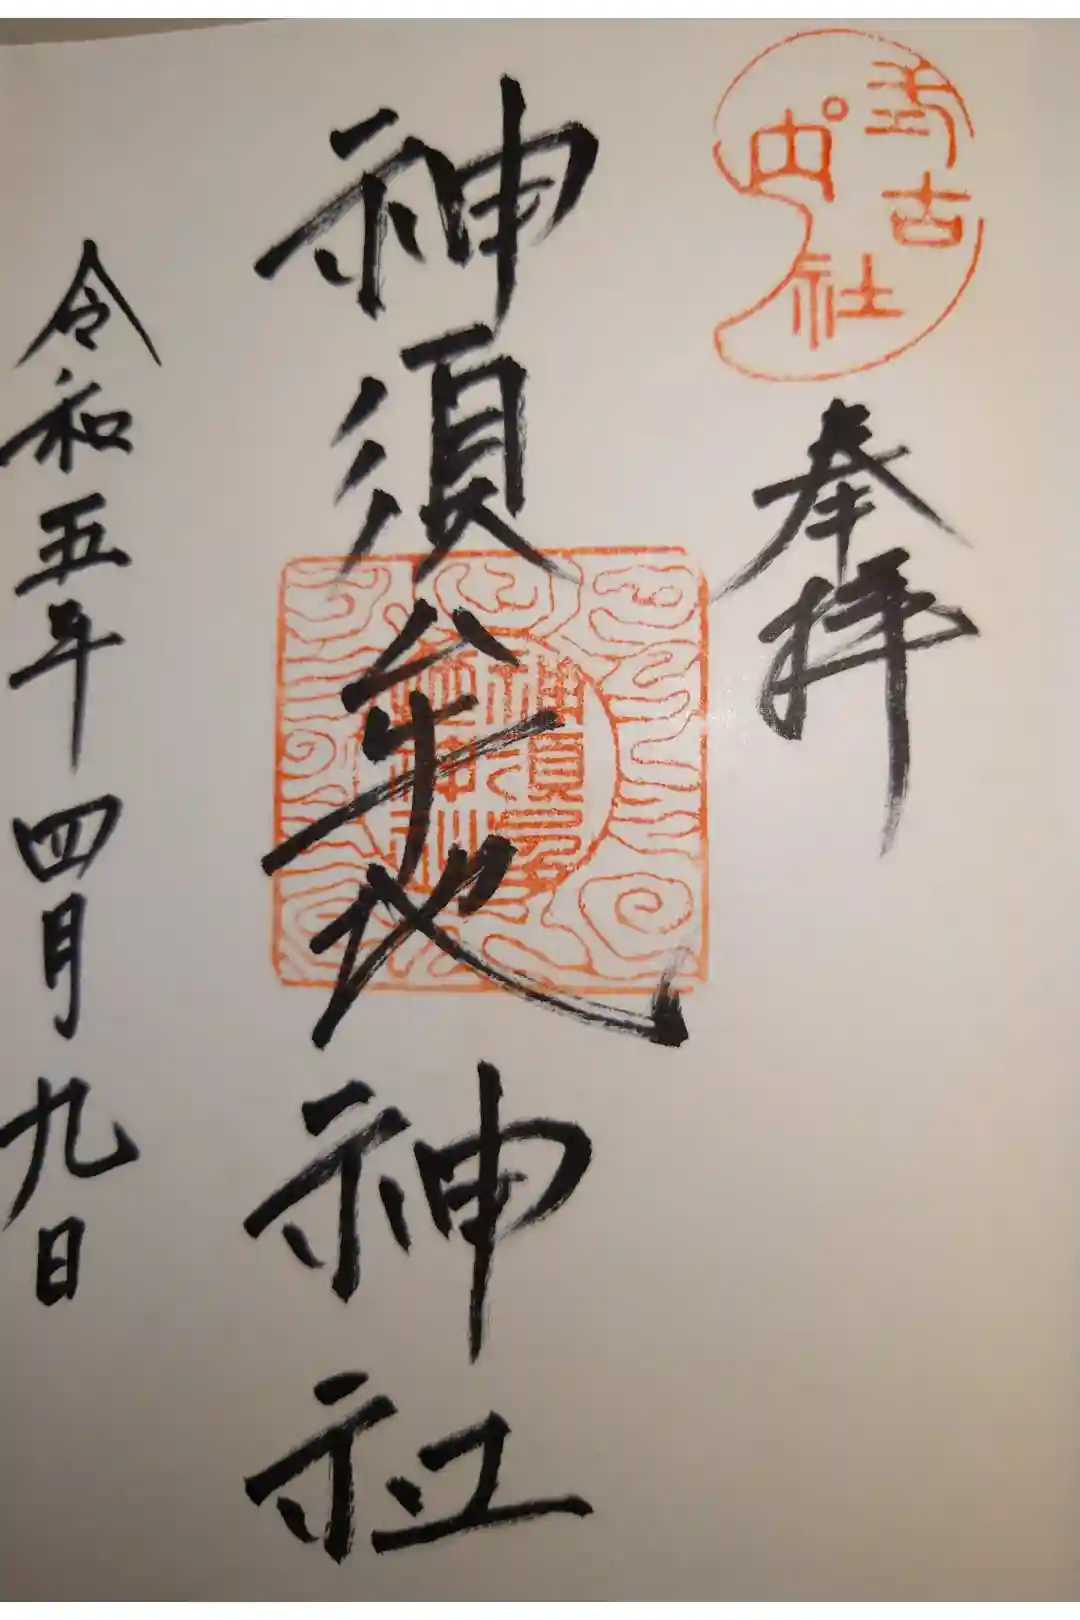 式内古社
奉拝
神須牟地神社
神須牟
地神社
令和五年四月九日